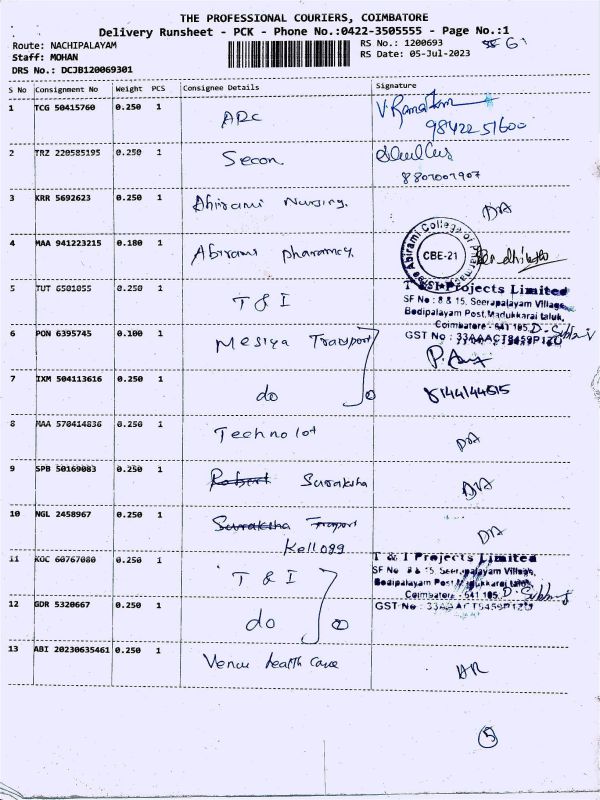 THE PROFESSIONAL COURIERS, COIMBATORE
Delivery Runsheet - PCK - Phone No.:0422-3505555 - Page No.:1
Route: NACHIPALAYAM
RS No.: 1200693
Staff: MOHAN
RS Date: 05-Jul-2023
DRS No.: DCJB120069301
S No Consignment No Weight PCS Consignee Details Signature
1 TCG 50415760 0.250 1 ADC
98422 51600
2 TRZ 220585195 0.250 1 Secon
8807007907
3 KRR 5692623 0.250 1 Abirami Nursing. DA
4 MAA 941223215 0.180 1 Abirami pharamacy.
Abirami College of Pharmacy
CBE-21
5 TUT 6501055 0.250 1 T & I
T & I Projects Limited
SF No : 8 & 15, Seerapalayam Village,
Bodipalayam Post, Madukkarai taluk,
Coimbatore - 641 105.
GST No : 33AAACT5459P1ZU
6 PON 6395745 0.100 1 Mesiya Transport
7 IXM 504113616 0.250 1 do
8144144515
8 MAA 570414836 0.250 1 Techno lot DA
9 SPB 50169083 0.250 1 Robert Suraksha DA
10 NGL 2458967 0.250 1 Suraksha Trasport DA
Kellogg
11 KOC 60767080 0.250 1 T & I
T & I Projects Limited
SF No 8 & 15, Seerapalayam Village,
Bodipalayam Post, Madukkarai taluk,
Coimbatore - 641 105.
12 GDR 5320667 0.250 1 do
GST No : 33AAACT5459P1ZU
13 ABI 20230635461 0.250 1 Venu health care AR
5